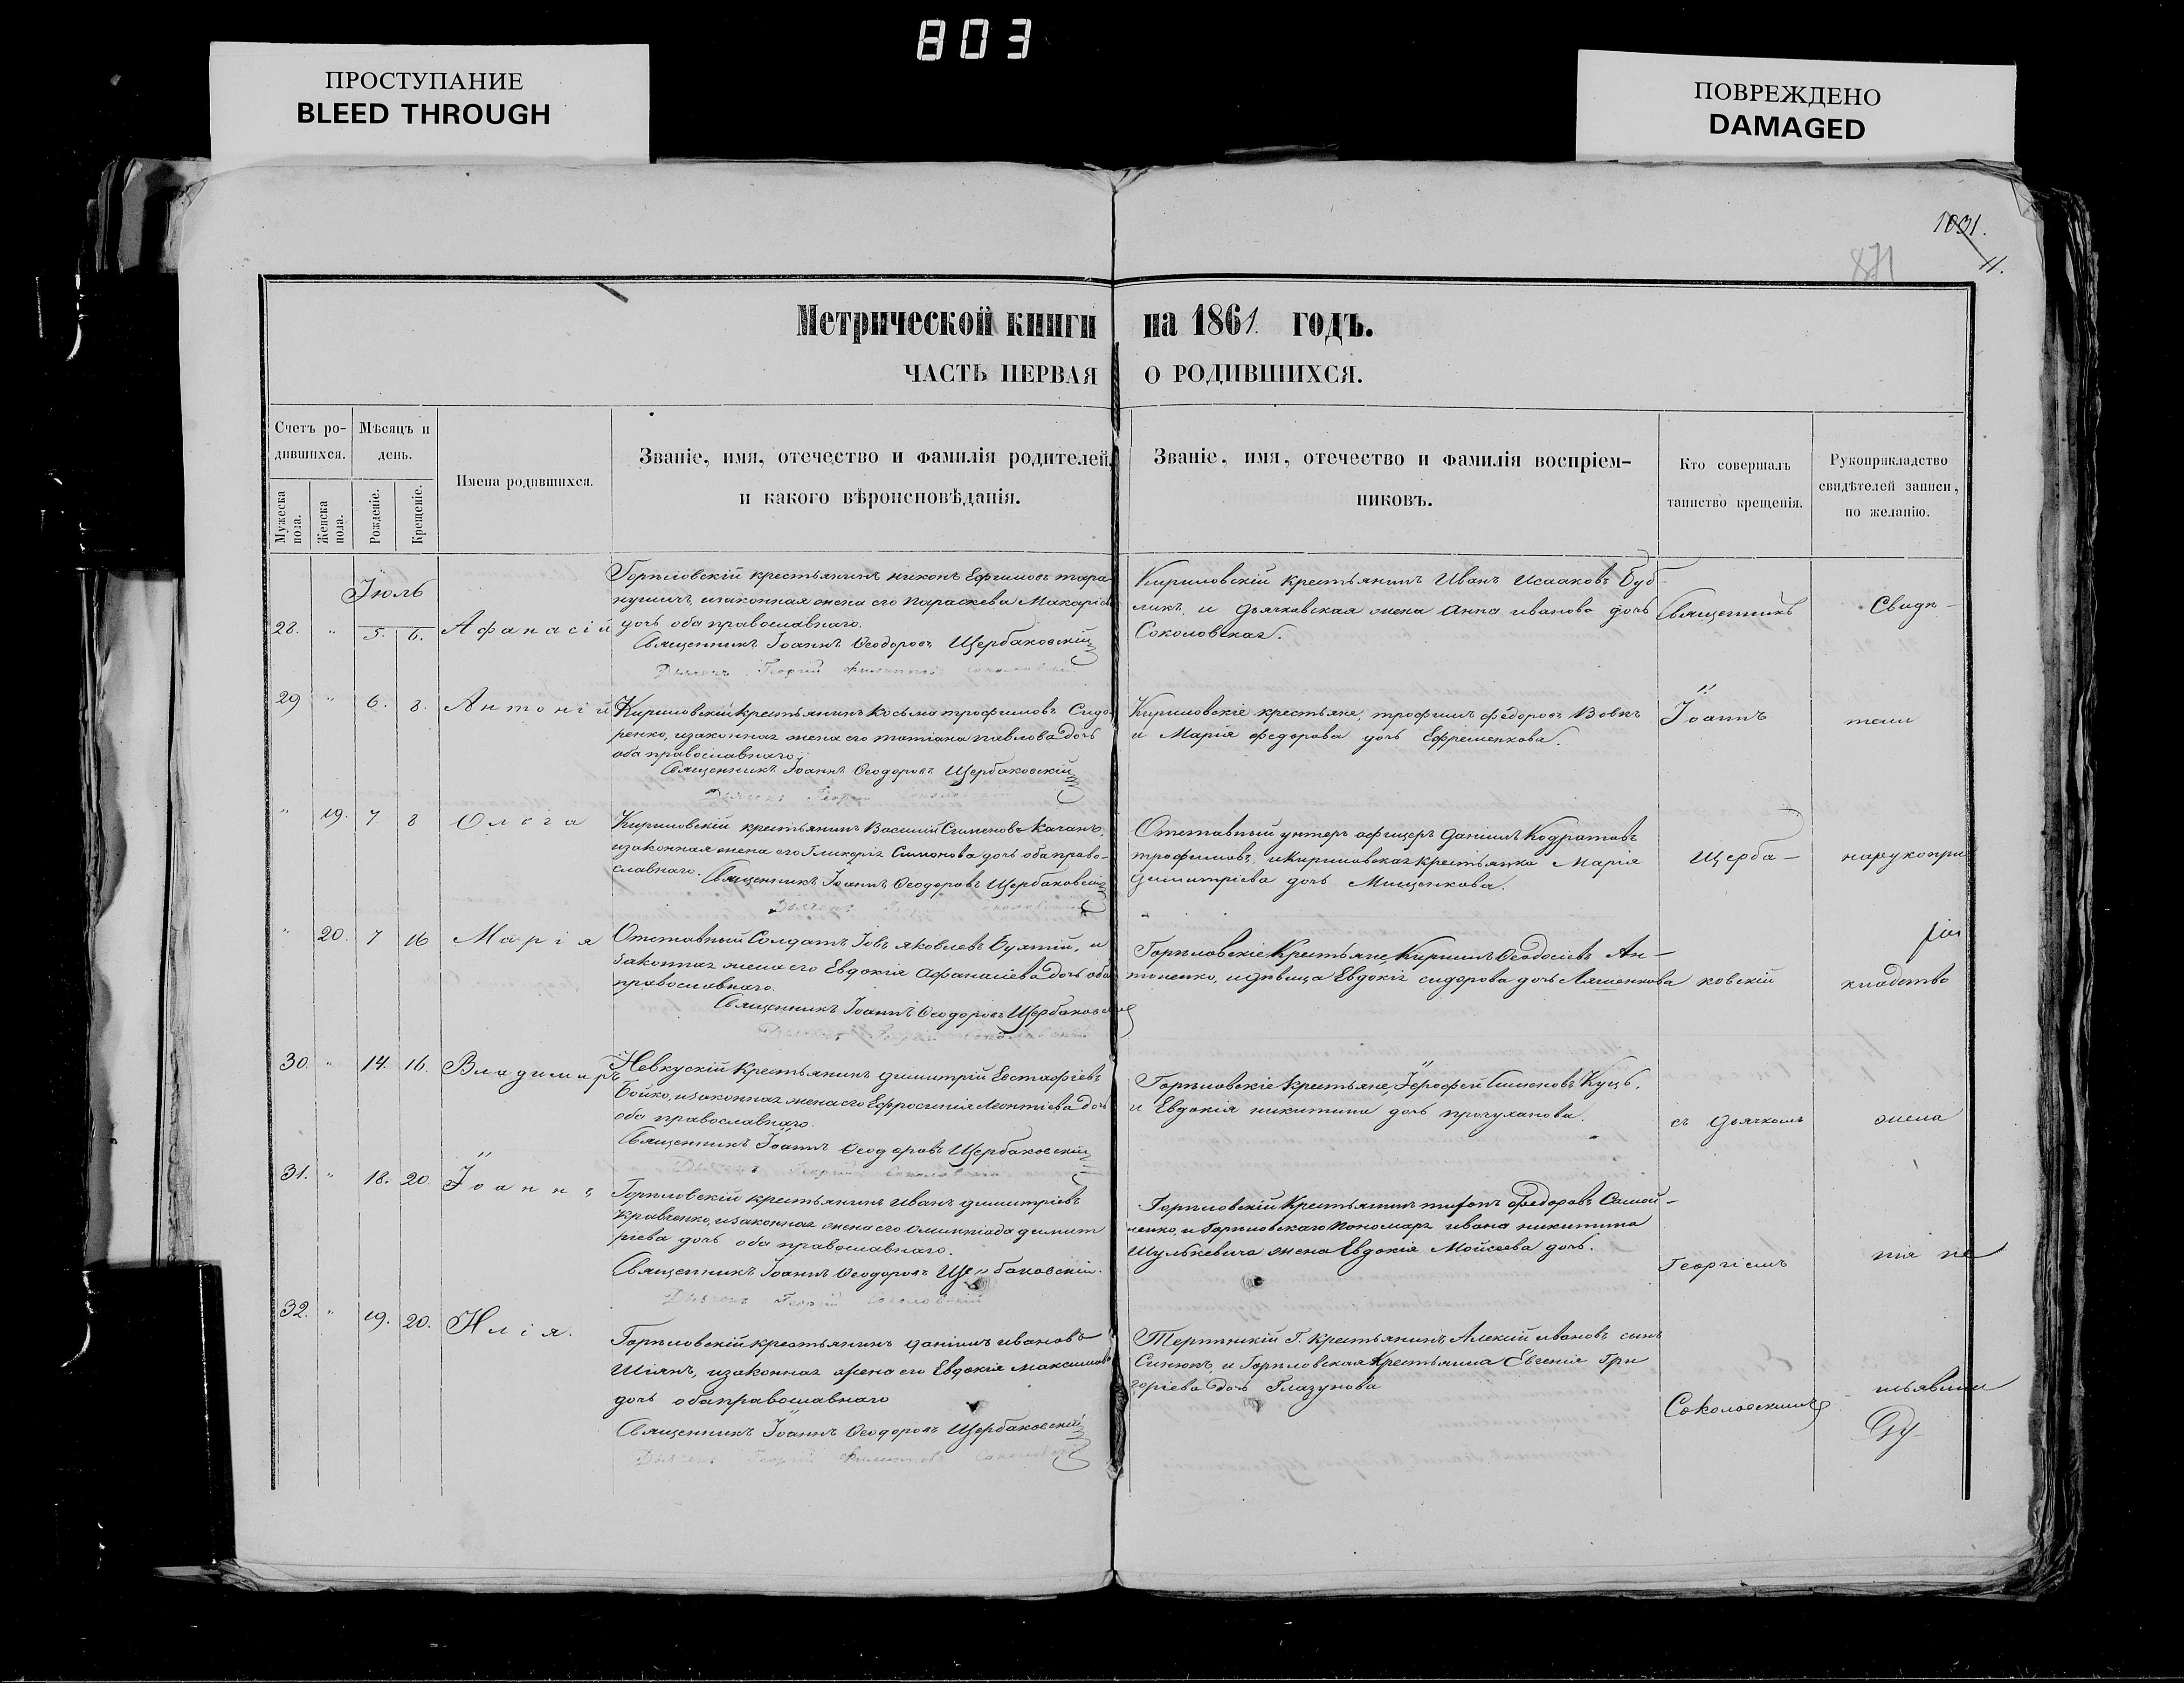 803
ПРОСТУПАНИЕ
BLEED THROUGH
ПОВРЕЖДЕНО
DAMAGED
1031.
871
11.
Метрической книги на 1861. годъ.
ЧАСТЬ ПЕРВАЯ О РОДИВШИХСЯ.
Счетъ ро-
дившихся.
Мужеска пола.
Женска пола.
Мѣсяцъ и
день.
Рожденіе.
Крещеніе.
Имена родившихся.
Званіе, имя, отечество и фамилія родителей,
и какого вѣроисповѣданія.
Званіе, имя, отечество и фамилія воспріем-
никовъ.
Кто совершалъ
таинство крещенія.
Рукоприкладство
свидѣтелей записи,
по желанію.
Іюль
28. " 5. 6. Афанасій
крестьянинъ Никонъ Ефимовъ
законная жена его Параскева
дочь оба православнаго.
Священникъ Іоаннъ Ѳеодоровъ Щербаковскій
Дьячокъ Георгій Соколовскій
Кириловскій крестьянинъ Иванъ Исааковъ Буб-
ликъ, и дьячковская жена Анна Иванова дочь
Соколовская.
Священникъ
Свидѣ-
29 " 6. 8. Антоній
Кириловскій крестьянинъ Косьма Трофимовъ Сидо-
ренко, и законная жена его Татіана Павлова дочь
оба православнаго.
Священникъ Іоаннъ Ѳеодоровъ Щербаковскій
Дьячокъ Георгій
Кириловскіе крестьяне, Трофимъ Федоровъ Вовкъ
и Марія Федорова дочь Ефременкова.
Іоаннъ
тели
" 19. 7. 8 Ольга
Кириловскій крестьянинъ Василій Симеоновъ Качанъ,
и законная жена его Гликерія Симонова дочь оба право-
славнаго. Священникъ Іоаннъ Ѳеодоровъ Щербаковскій
Дьячокъ
Отставный унтеръ офицеръ Даніилъ Кодратовъ
Трофимовъ, и Кириловская крестьянка Марія
Димитріева дочь Мищенкова.
Щерба-
на рукопри
" 20. 7 16 Марія
Отставный Солдатъ Іовъ Яковлевъ, и
законная жена его Евдокія Афанасіева дочь оба
православнаго.
Священникъ Іоаннъ Ѳеодоровъ Щербаковскій
крестьяне, Кирилъ Ѳеодосіевъ Ан-
тоненко, и дѣвица Евдокія Сидорова дочь Ляшенкова
ковскій
кладство
30. " 14. 16. Владимиръ
крестьянинъ Димитрій Евстафіевъ
Бойко, и законная жена его Ефросинія Леонтіева дочь
оба православнаго.
Священникъ Іоаннъ Ѳеодоровъ Щербаковскій
Дьячокъ Георгій Соколовскій
крестьяне, Іерофей Симеоновъ Куць,
и Евдокія Никитина дочь
съ дьячкомъ
жела
31. " 18. 20. Іоаннъ
крестьянинъ Иванъ Димитріевъ
Кравченко, и законная жена его Олимпіада Димит
ріева дочь оба православнаго.
Священникъ Іоаннъ Ѳеодоровъ Щербаковскій.
Дьячокъ Георгій Соколовскій
крестьянинъ Федоровъ Самой-
ленко, и Пономаря Ивана Никитина
Шулькевича жена Евдокія Мойсеева дочь.
Георгіемъ
нія не
32. " 19. 20. Илія.
крестьянинъ Даніилъ Ивановъ
Шіянъ, и законная жена его Евдокія Максимова
дочь оба православнаго
Священникъ Іоаннъ Ѳеодоровъ Щербаковскій
Дьячокъ Георгій Соколовскій
крестьянинъ, Алексій Ивановъ сынъ
и Евгенія Гри
горіева дочь Глазунова
Соколовскимъ
изъявили